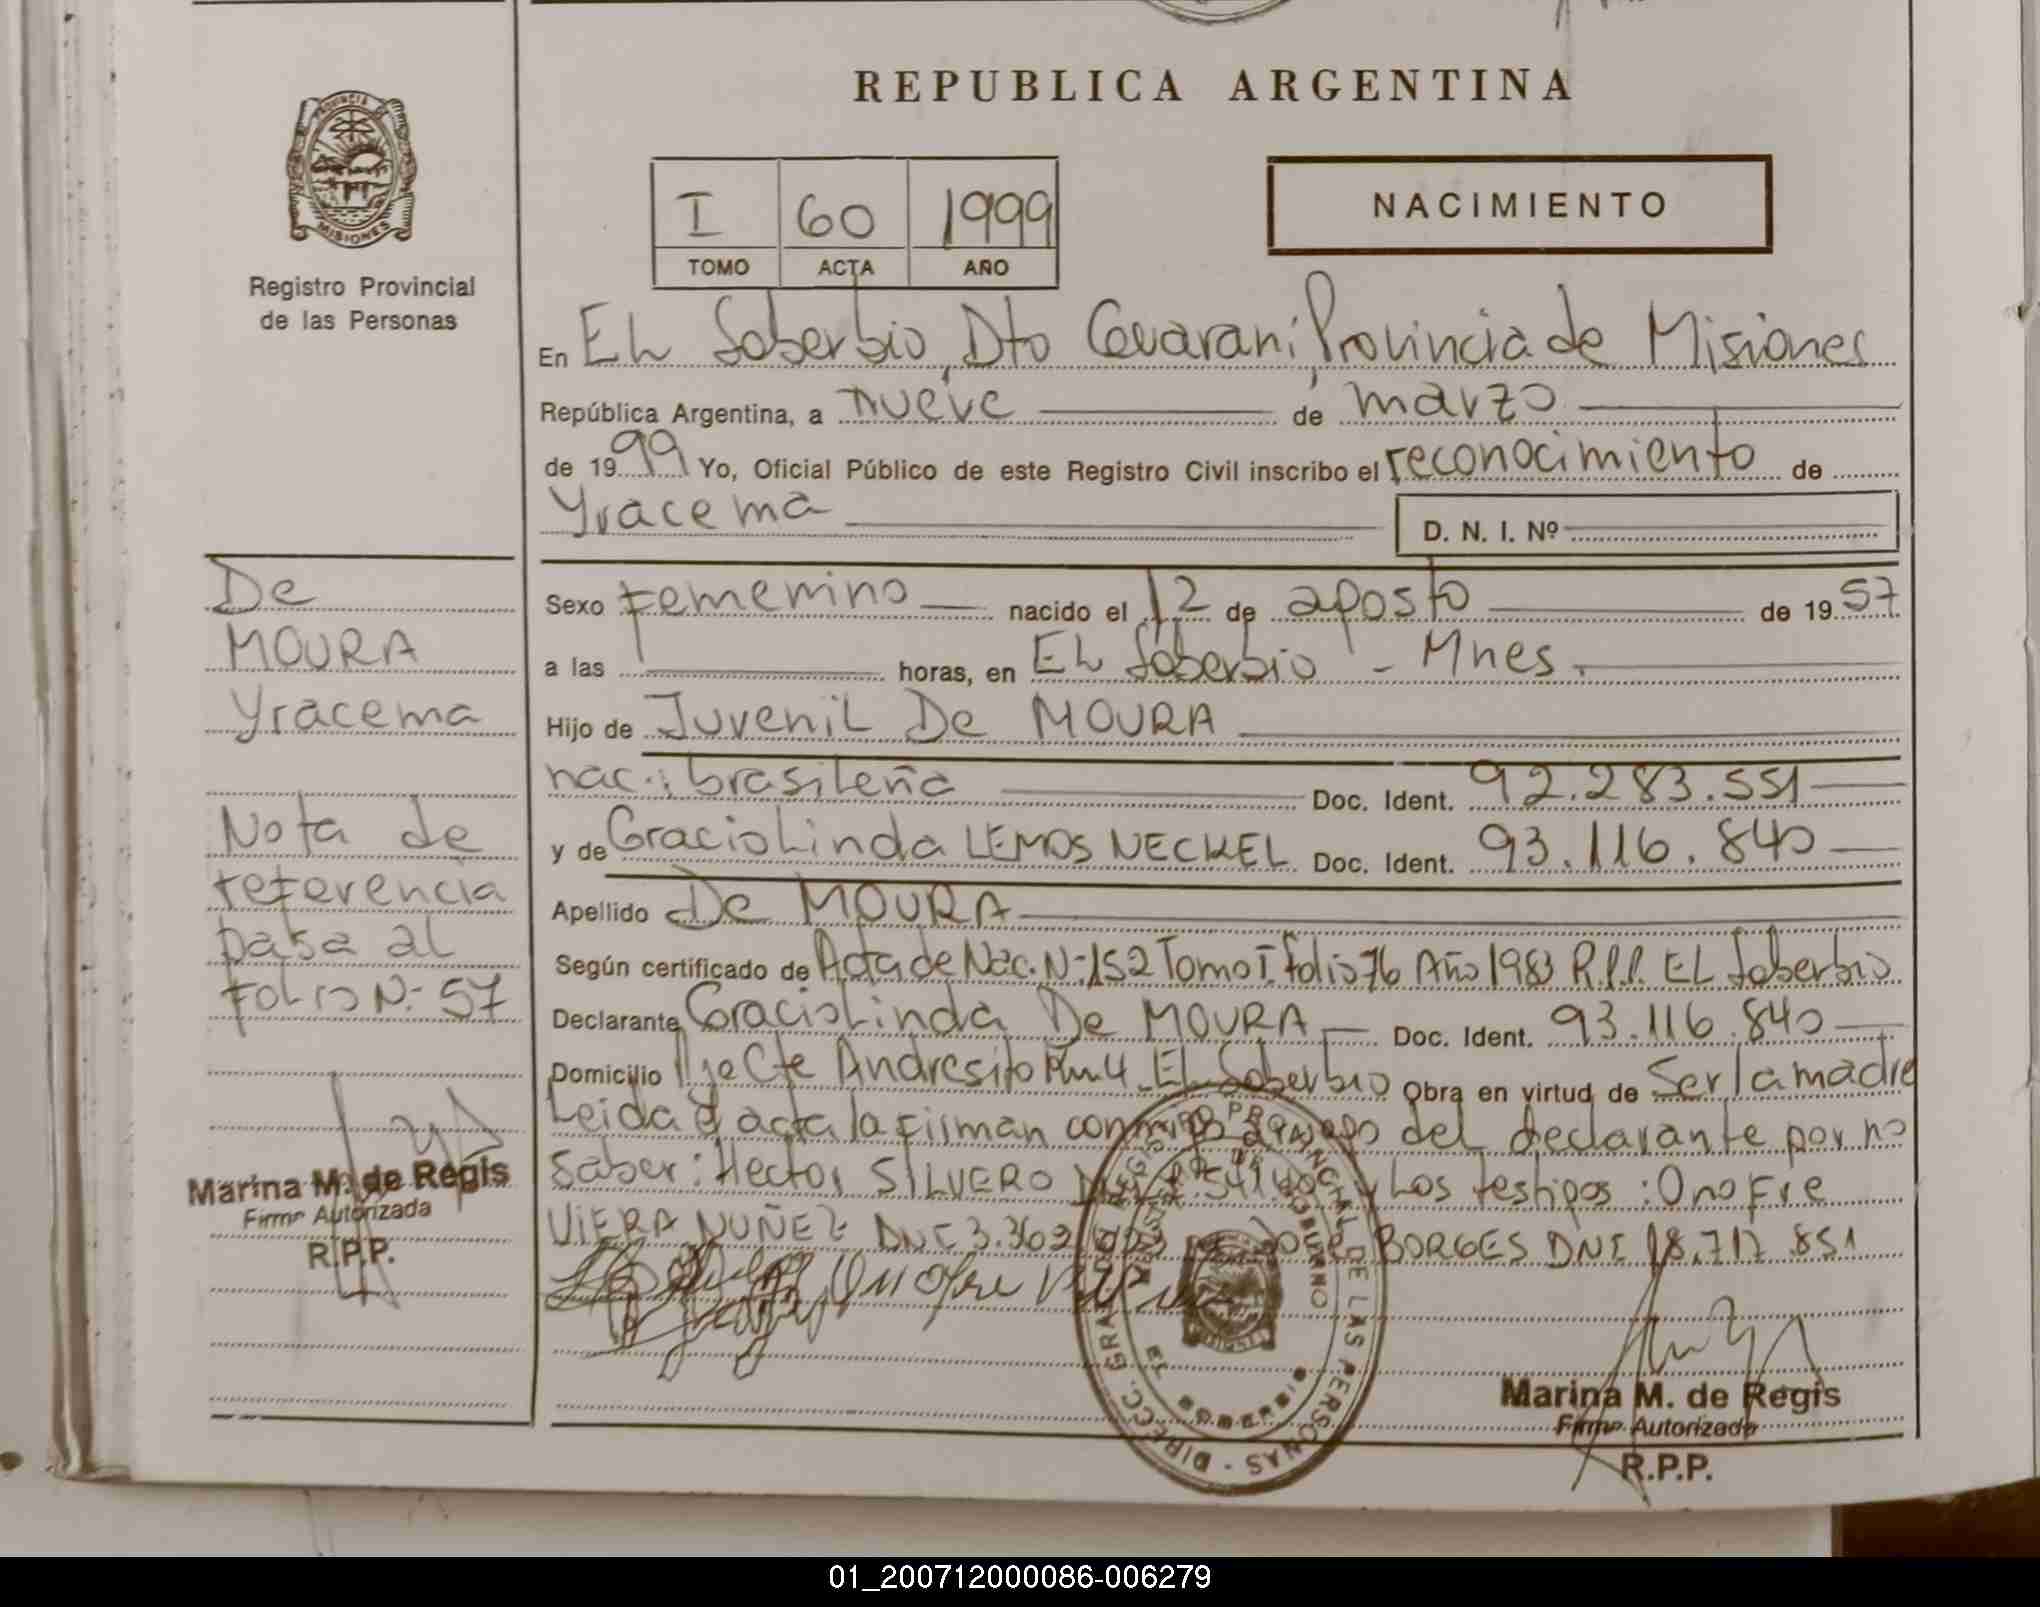 REPUBLICA ARGENTINA
PROVINCIA DE
MISIONES
Registro Provincial
de las Personas
I 60 1999
TOMO ACTA AÑO
NACIMIENTO
En EL Soberbio, Dto Guarani, Provincia de Misiones
República Argentina, a nueve de marzo
de 1999 Yo, Oficial Público de este Registro Civil inscribo el reconocimiento de
Yracema D. N. I. Nº
Sexo femenino nacido el 12 de agosto de 1957
a las horas, en EL Soberbio - Mnes.
Hijo de Juvenil De MOURA
nac.: brasileña Doc. Ident. 92.283.551
y de Graciolinda LEMOS NECKEL Doc. Ident. 93.116.840
Apellido De MOURA
Según certificado de Acta de Nac. N-152 Tomo I folio 76 Año 1983 R.P.P. EL Soberbio
Declarante Graciolinda De MOURA Doc. Ident. 93.116.840
Domicilio Pje Cte Andresito Km 4 EL Soberbio Obra en virtud de Ser la madre
Leida el acta la firman conmigo a ruego del declarante por no
Saber: Hector SILVERO Los testigos: Onofre
VIERA NUÑEZ DNI 3.362 BORGES DNI 18.717.851
De
MOURA
Yracema
Nota de
referencia
pasa al
FOLIO N- 57
Marina M. de Regis
Firma Autorizada
R.P.P.
DIRECC. GRAL. DEL REGISTRO PROVINCIAL DE LAS PERSONAS
Marina M. de Regis
Firma Autorizada
R.P.P.
01_200712000086-006279